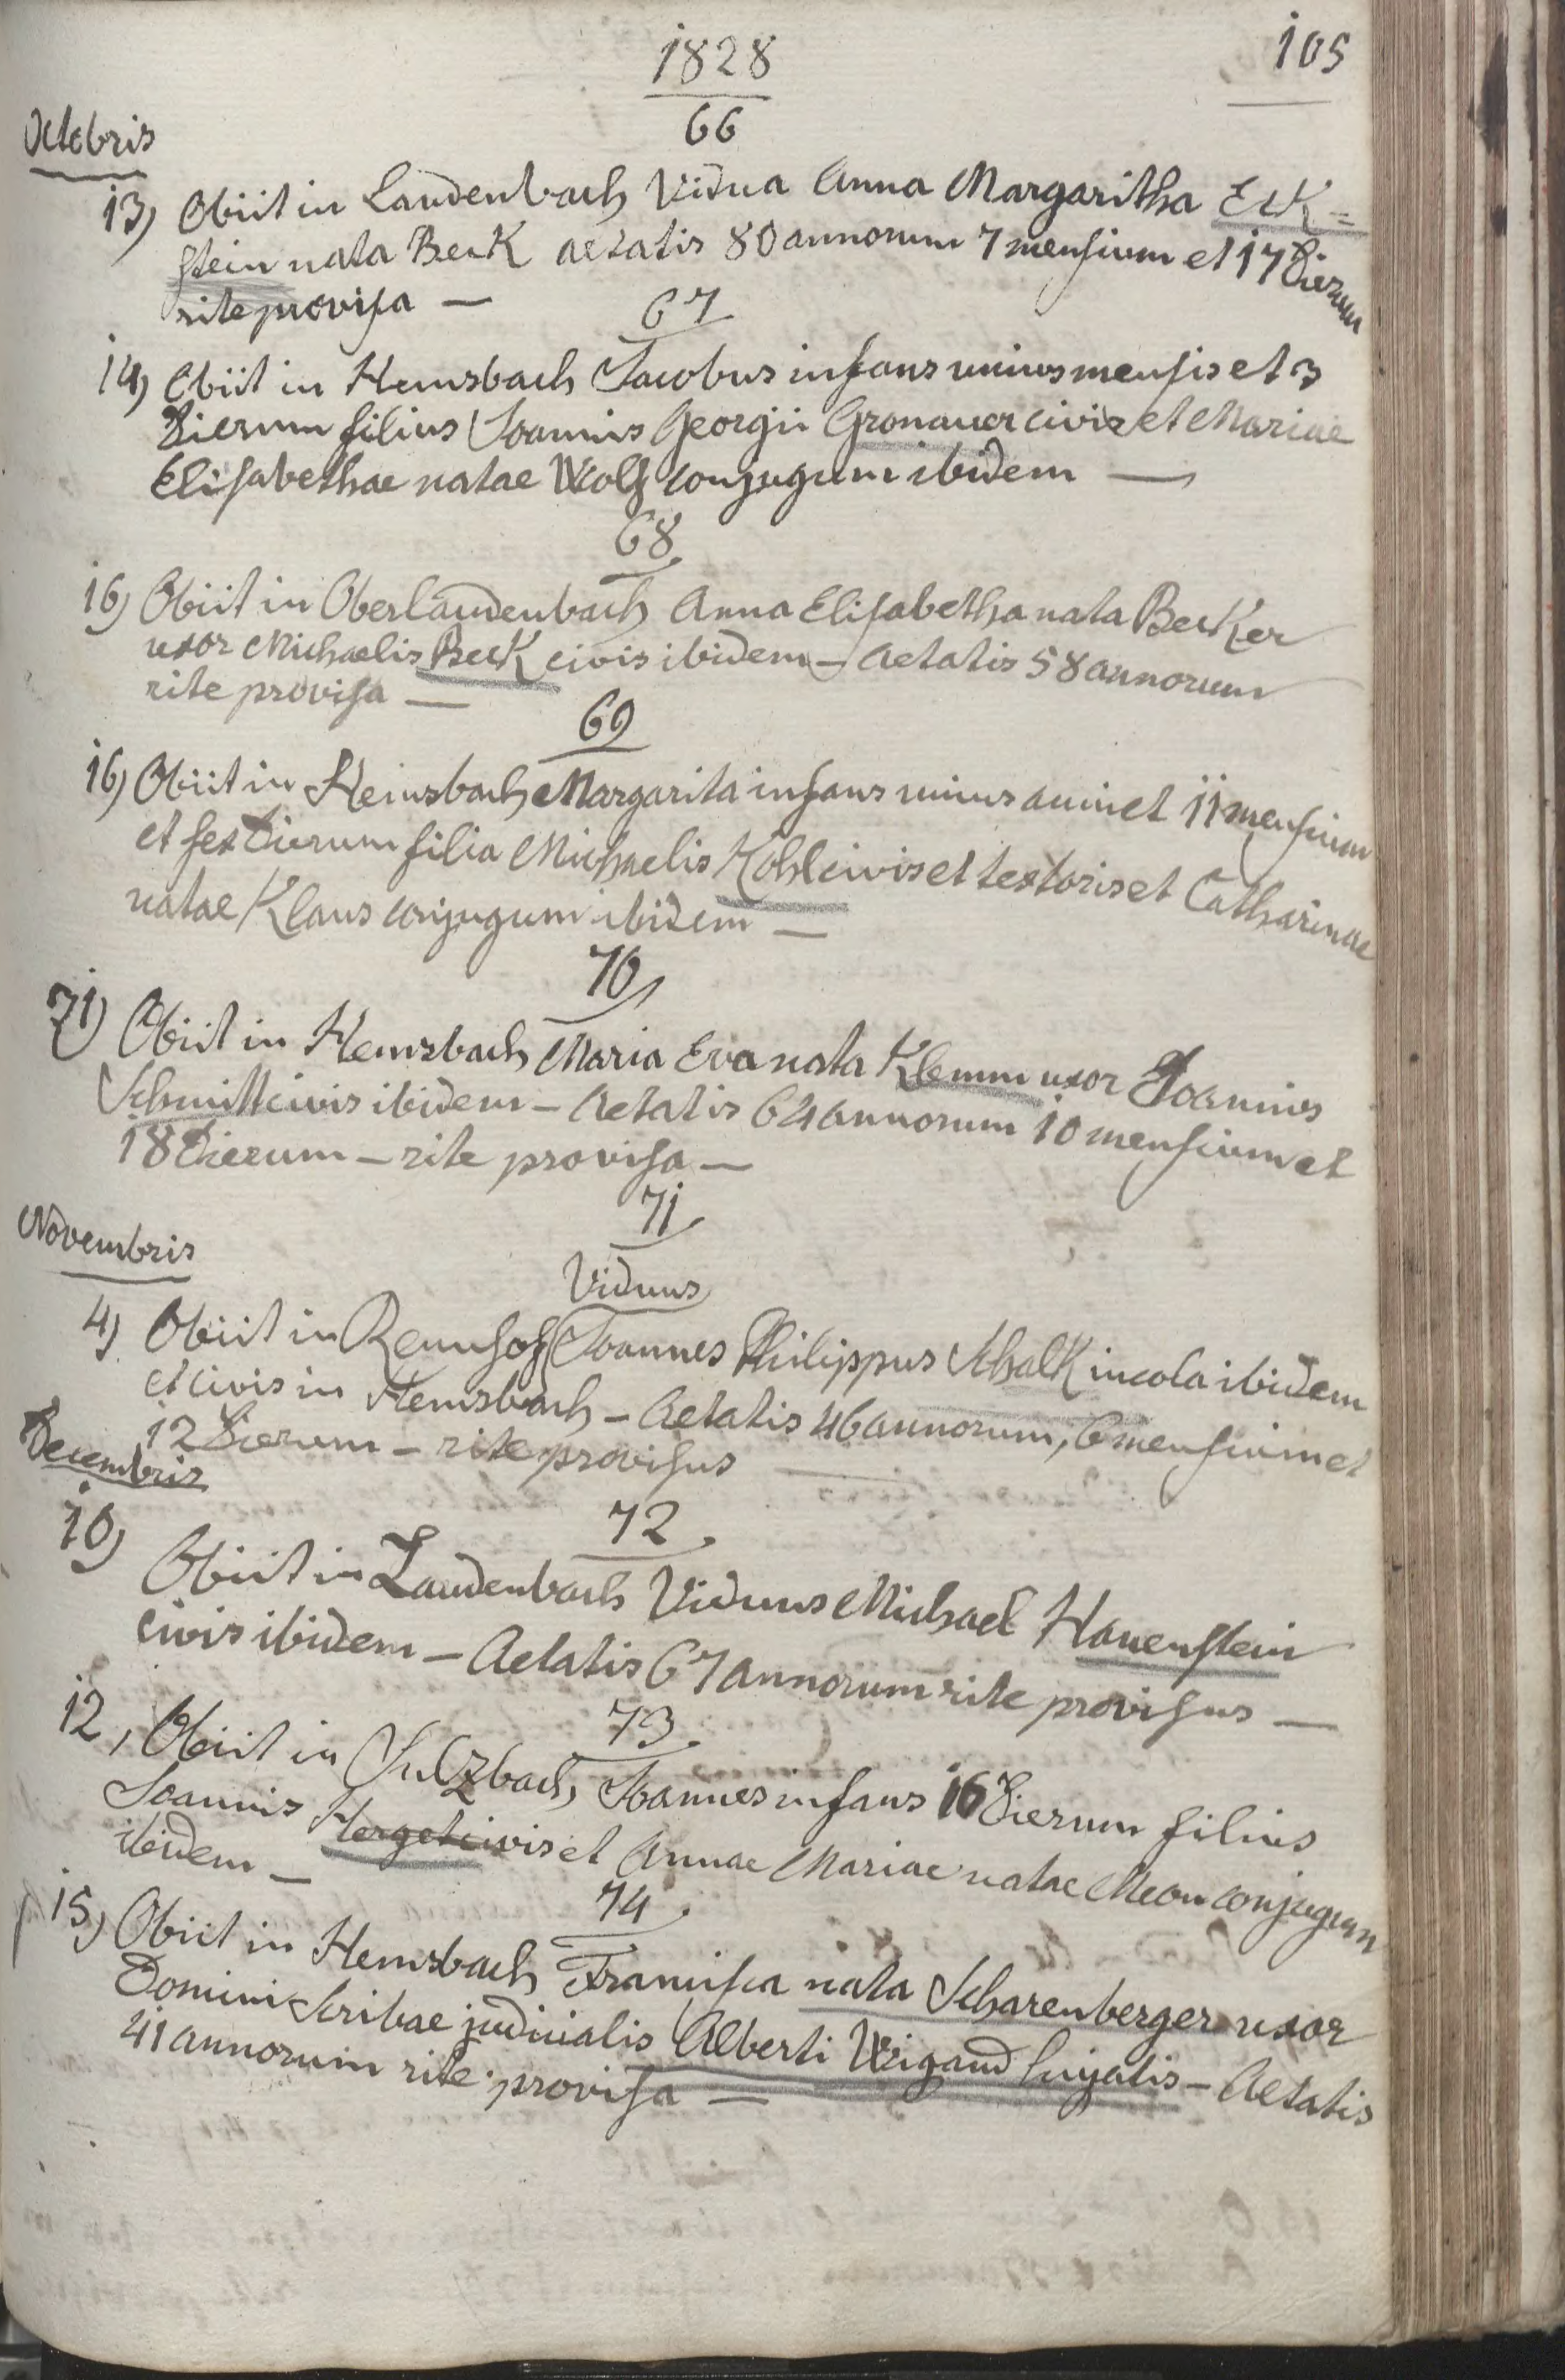 1828
105
66
Octobris
13) Obiit in Laudenbach Vidua Anna Margaritha Eck=
stein nata Beck aetatis 80 annorum 7 mensium et 17 dierum
rite provisa —
67
14) Obiit in Hemsbach Jacobus infans unius mensis et 3
dierum filius Joannis Georgii Gronauer civis et Mariae
Elisabethae natae Wolf conjugum ibidem —
68
16) Obiit in Oberlaudenbach Anna Elisabetha nata Becker
uxor Michaelis Beck civis ibidem – Aetatis 58 annorum
rite provisa —
69
16) Obiit in Hemsbach Margarita infans unius anni et 11 mensium
et sex dierum filia Michaelis Kohl civis et textoris et Catharinae
natae Klaus conjugum ibidem —
70
21) Obiit in Hemsbach Maria Eva nata Klemm uxor Joannis
Schmitt civis ibidem – Aetatis 64 annorum 10 mensium et
18 dierum – rite provisa —
71
Novembris
Viduus
4) Obiit in Rennhof Joannes Philippus Schalk incola ibidem
et civis in Hemsbach – Aetatis 46 annorum, 6 mensium et
12 dierum – rite provisus —
Decembris
72
10) Obiit in Laudenbach Viduus Michael Hauenstein
civis ibidem – Aetatis 67 annorum rite provisus —
73
12, Obiit in Sulzbach Joannes infans 16 dierum filius
Joannis Herget civis et Annae Mariae natae Meon conjugum
ibidem —
74
15) Obiit in Hemsbach Francisca nata Scharenberger uxor
Domini Scribae judicialis Alberti Wigand hujatis – Aetatis
41 annorum rite provisa —